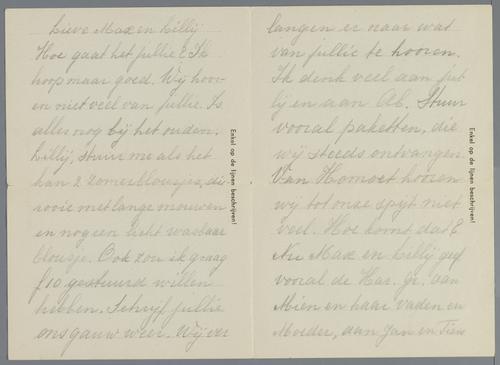 Lieve Max en Lillij
Hoe gaat het jullie? Ik
hoop maar goed. Wij hoor-
en niet veel van jullie. Is
alles nog bij het ouden.
Lillij, stuur me als het
kan 2 zomerblousjes, die
rooie met lange mouwen
en nog een licht wasbaar
blousje. Ook zou ik graag
f 10 gestuurd willen
hebben. Schrijf jullie
ons gauw weer. Wij ver
Enkel op de lijnen beschrijven!
langen er naar wat
van jullie te hooren.
Ik denk veel aan jul
lij en aan Ab. Stuur
vooral paketten, die
wij steeds ontvangen
Van Homoet hooren
wij tot onse spijt niet
veel. Hoe komt dat?
Nu Max en Lillij geef
vooral de Har. gr. aan
Mien en haar Vader en
Moeder, aan Jan en
Enkel op de lijnen beschrijven!